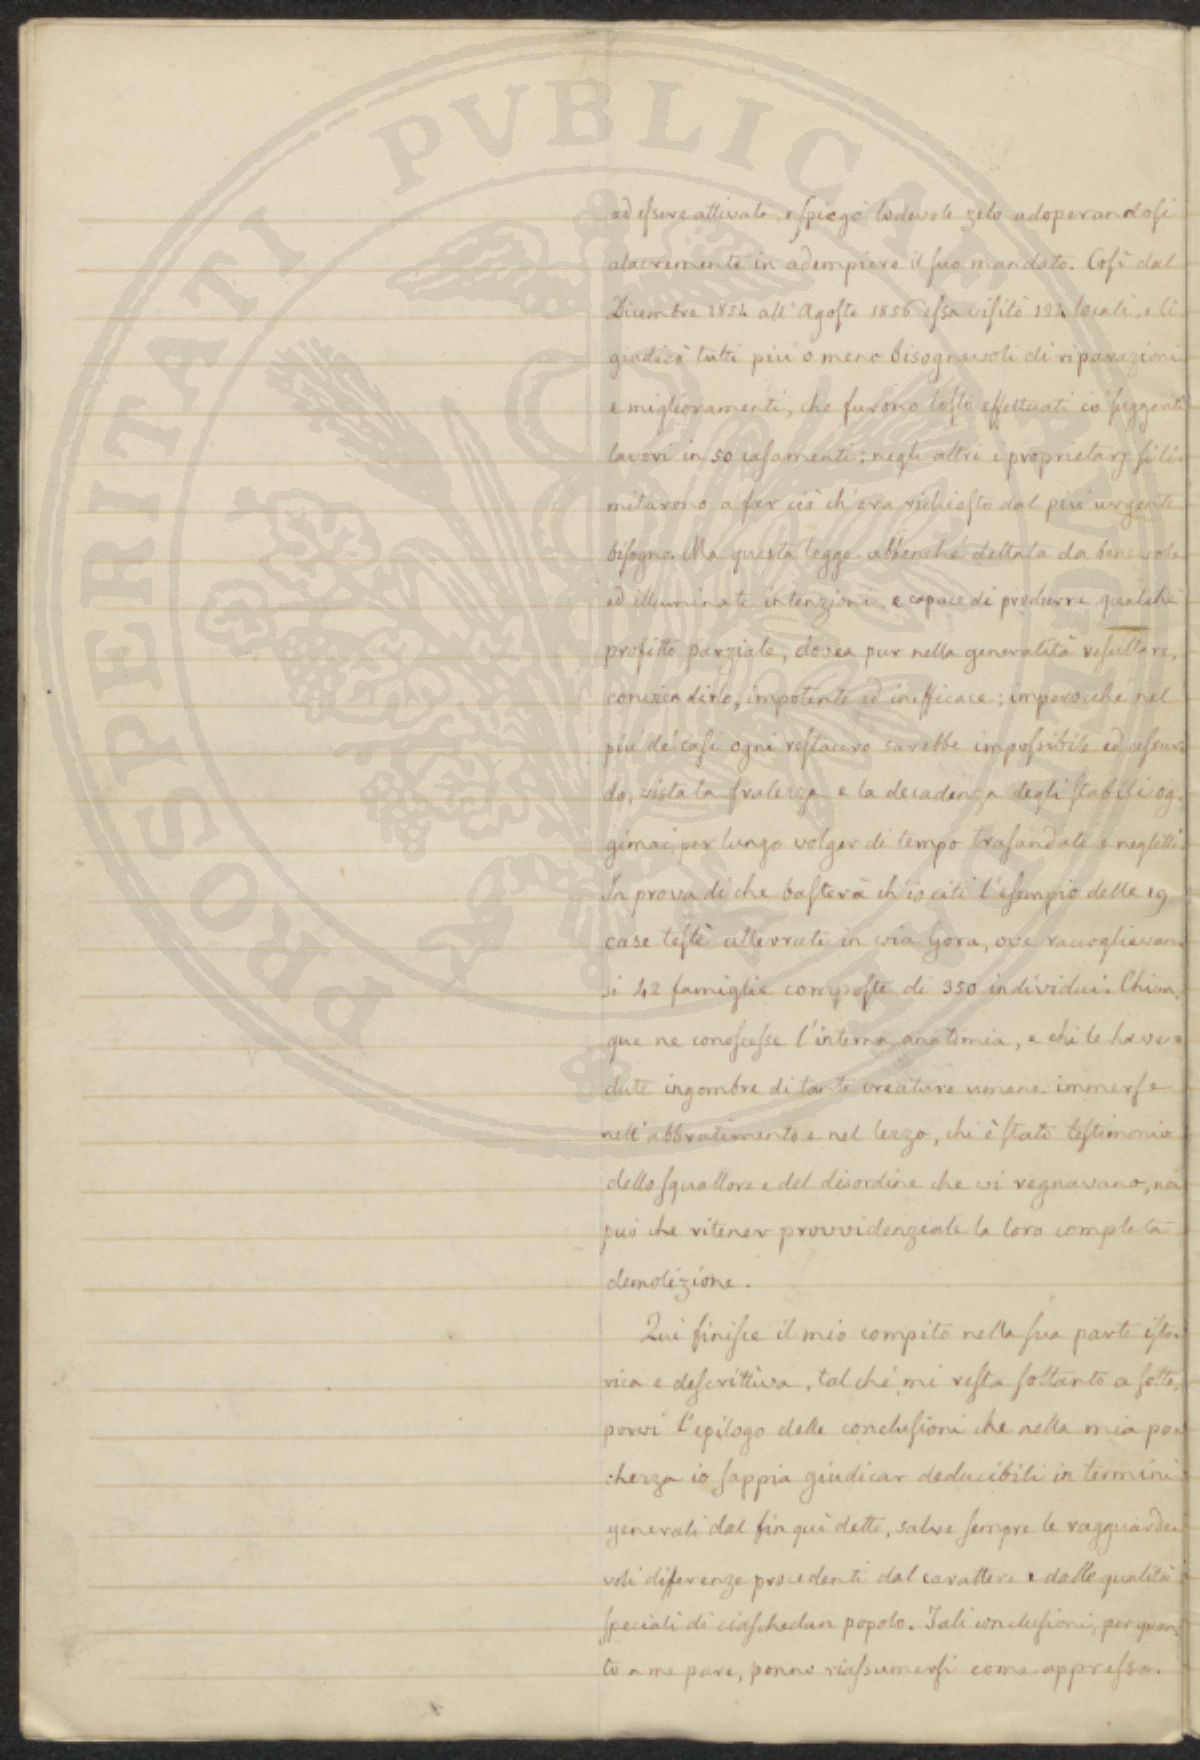 PROSPERITATI PUBLICAE
ad essere attivata, e spiegò lodevole zelo adoperandosi
alacremente in adempiere il suo mandato. Così dal
Dicembre 1854 all'Agosto 1856 essa visitò 122 locali, e li
giudicò tutti più o meno bisognevoli di riparazioni
e miglioramenti, che furono tosto effettuati co' suggeriti
lavori in 50 casamenti; negli altri i proprietarj si li-
mitarono a far ciò ch'era richiesto dal più urgente
bisogno. Ma questa legge abbenchè dettata da benevole
ed illuminate intenzioni, e capace di produrre qualche
profitto parziale, dovea pur nella generalità resultare,
convien dirlo, impotente ed inefficace; imperocchè nel
più de' casi ogni restauro sarebbe impossibile ed assur-
do, vista la fralezza e la decadenza degli stabili og-
gimai per lungo volger di tempo trasandati e negletti.
In prova di che basterà ch'io citi l'esempio delle 19
case testè atterrate in via Gora, ove raccoglievan-
si 42 famiglie composte di 350 individui. Chiun-
que ne conoscesse l'interna anatomia, e chi le ha ve-
dute ingombre di tante creature umane immerse
nell'abbrutimento e nel lezzo, chi è stato testimonio
dello squallore e del disordine che vi regnavano, non
può che ritener provvidenziale la loro completa
demolizione.
Qui finisce il mio compito nella sua parte isto-
rica e descrittiva, talchè mi resta soltanto a sotto-
porvi l'epilogo delle conclusioni che nella mia po-
chezza io sappia giudicar deducibili in termini
generali dal fin qui detto, salve sempre le ragguarde-
voli differenze procedenti dal carattere e dalle qualità
speciali di ciaschedun popolo. Tali conclusioni, per quan-
to a me pare, ponno riassumersi come appresso.